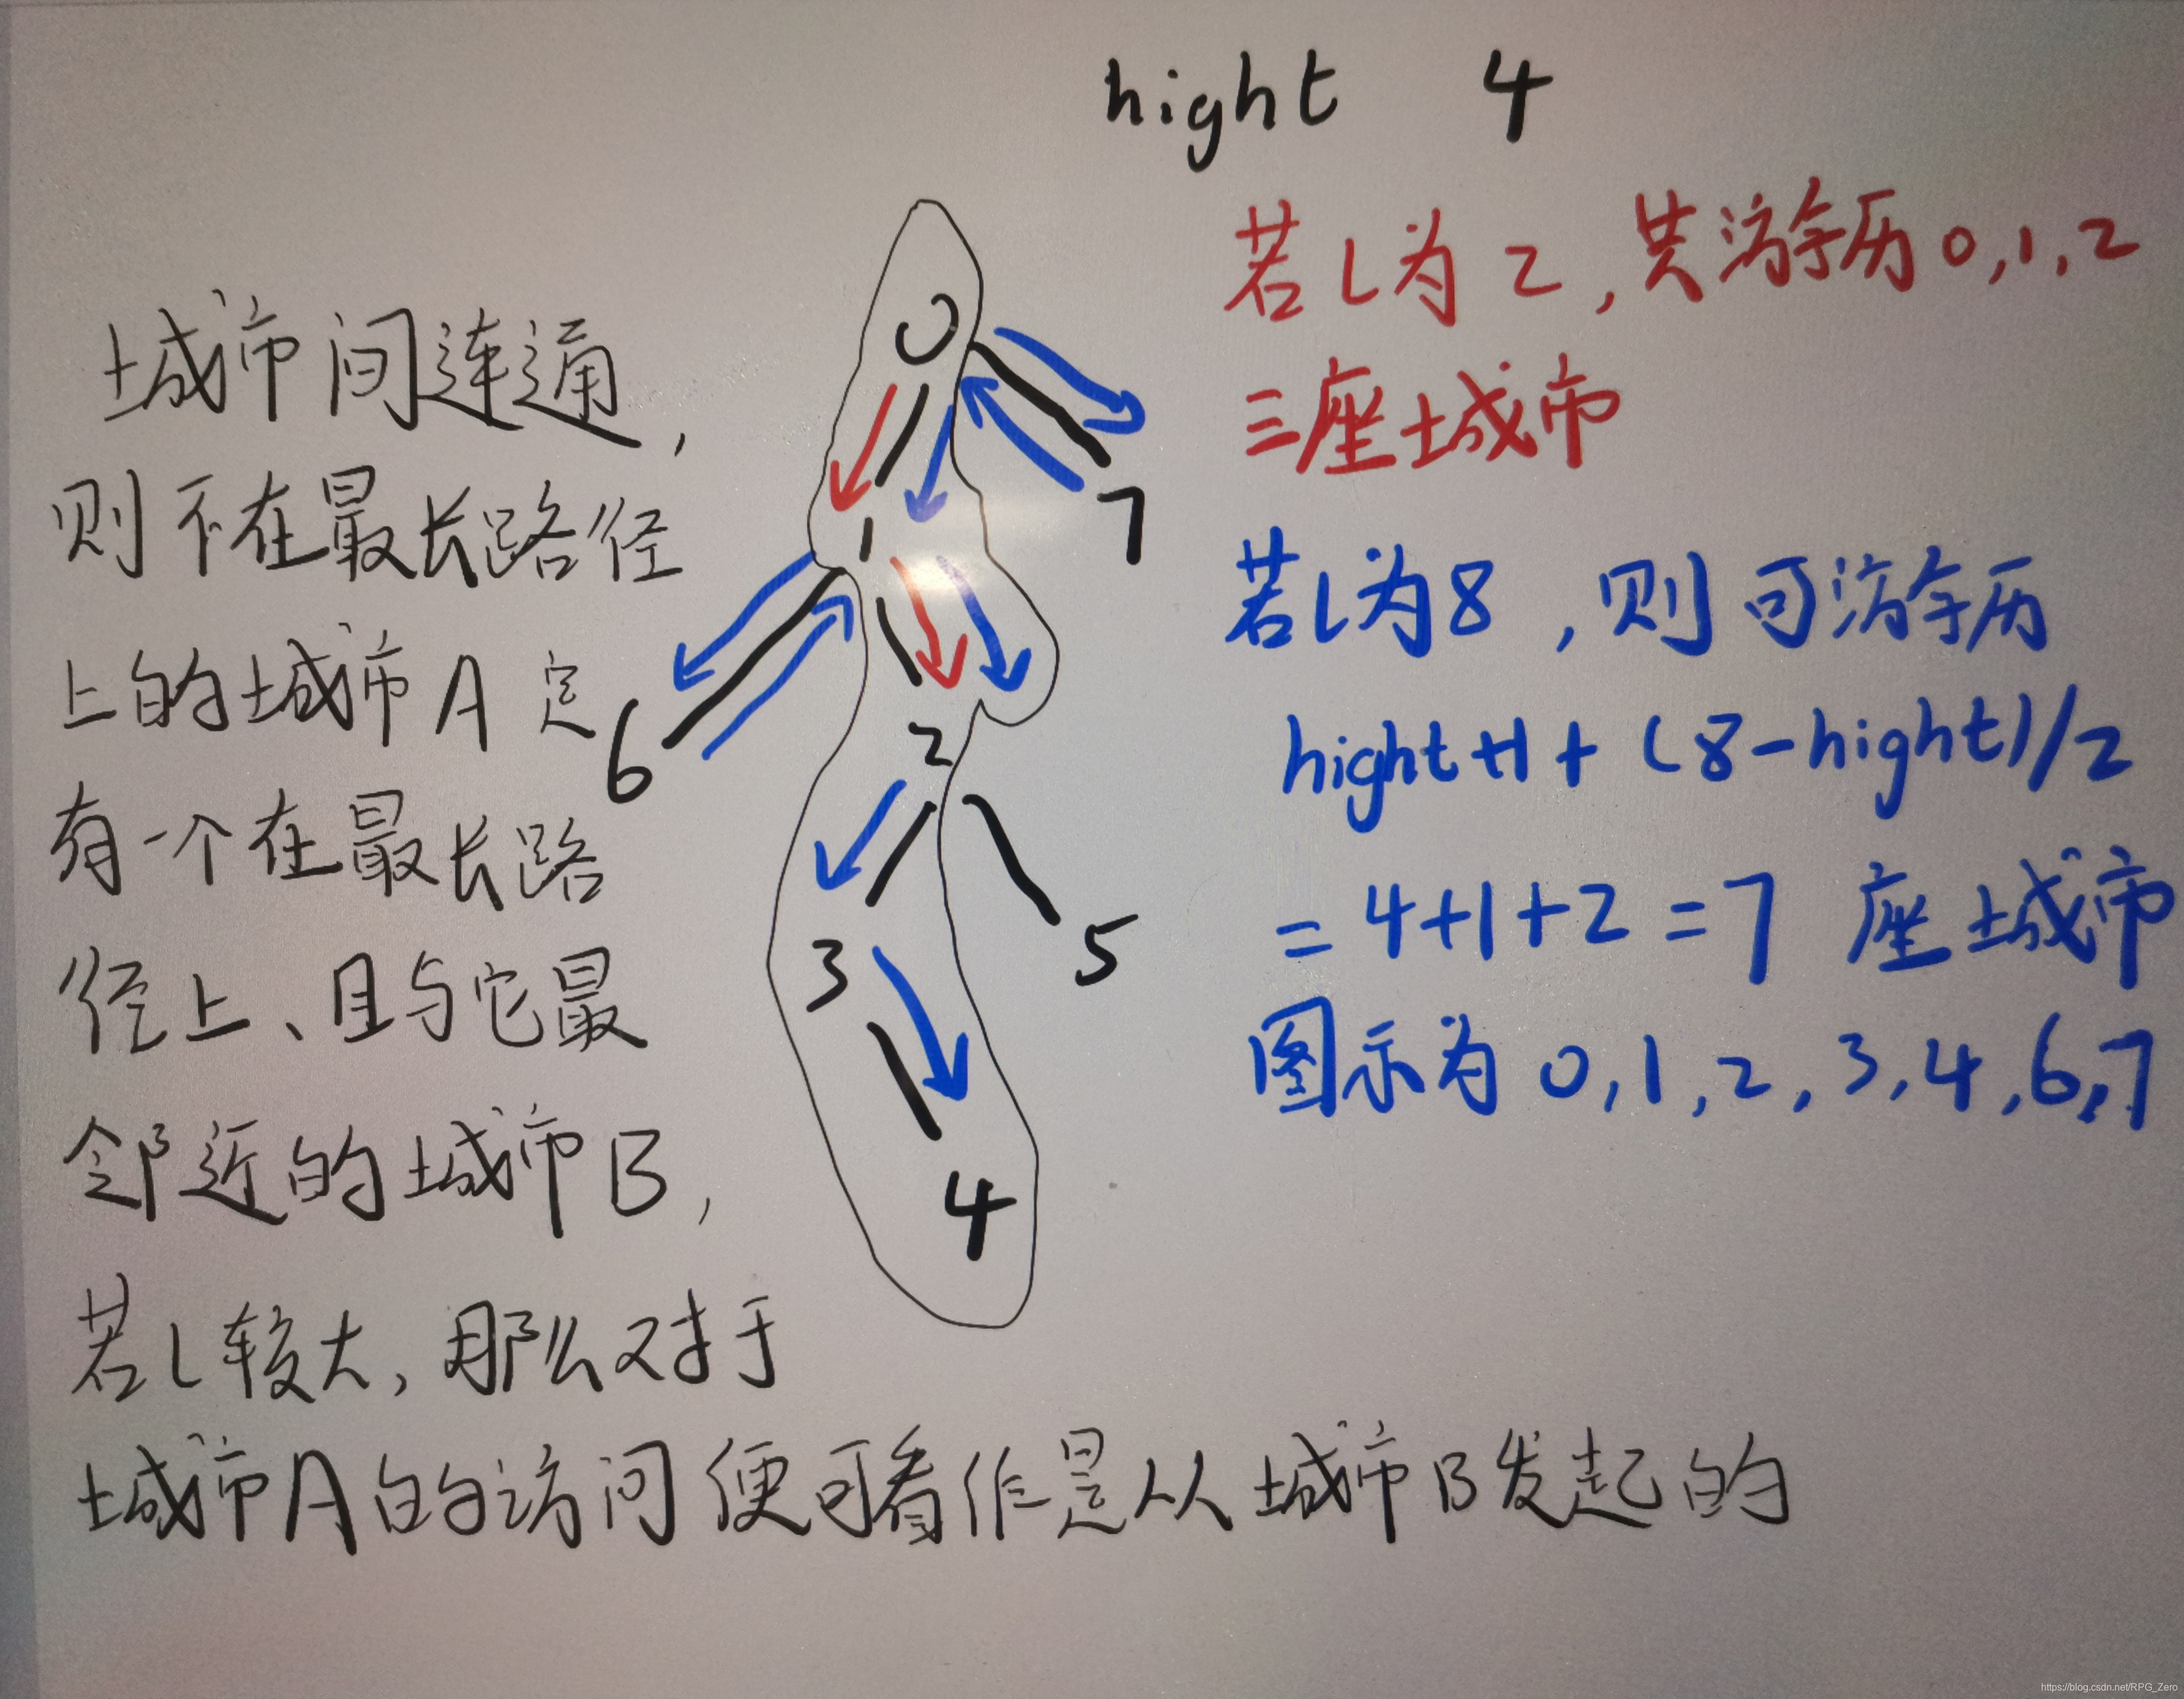 hight 4
若L为2,共游历0,1,2
三座城市
若L为8,则可游历
hight+1+(8-hight)/2
=4+1+2=7 座城市
图示为0,1,2,3,4,6,7
城市间连通,
则不在最长路径
上的城市A定
有一个在最长路
径上、且与它最
邻近的城市B,
若L较大,那么对于
城市A的访问便可看作是从城市B发起的
0
1
7
6
2
3
5
4
https://blog.csdn.net/RPG_Zero